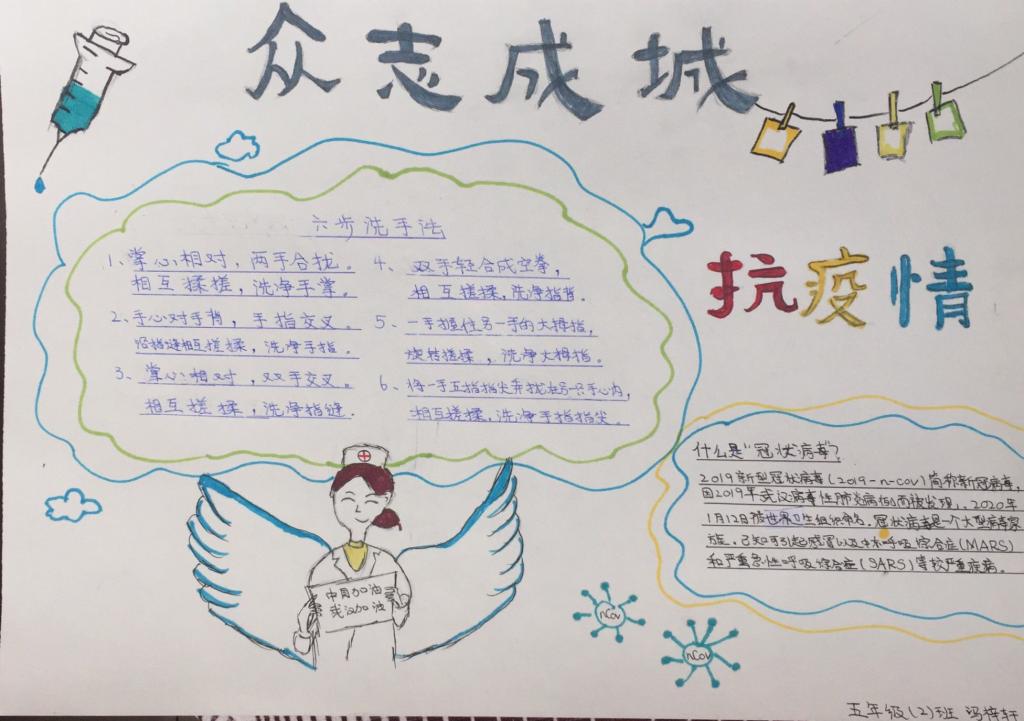 众志成城
抗疫情
六步洗手法
1、掌心相对，两手合拢。
相互揉搓，洗净手掌。
2、手心对手背，手指交叉。
沿指缝相互搓揉，洗净手指。
3、掌心相对，双手交叉。
相互搓揉，洗净指缝.
4、双手轻合成空拳，
相互搓揉，洗净指背.
5、一手握住另一手的大拇指，
旋转搓揉，洗净大拇指。
6、将一手五指指尖并拢在另只手心内，
相互搓揉，洗净手指指尖。
中国加油
武汉加油
什么是"冠状病毒"？
2019新型冠状病毒(2019-nCoV)简称新冠病毒，
因2019年武汉病毒性肺炎病例而被发现，2020年
1月12日被世界卫生组织命名。冠状病毒是一个大型病毒家
族，已知可引起感冒以及中东呼吸综合症(MARS)
和严重急性呼吸综合症(SARS)等较严重疾病。
nCov
nCov
五年级(2)班 冯梓轩